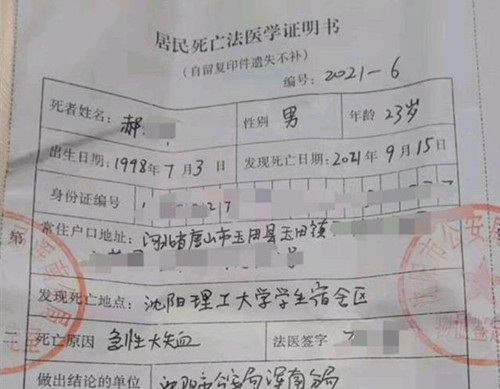 居民死亡法医学证明书
(自留复印件遗失不补)
编号: 2021-6
死者姓名: 郝 性别 男 年龄 23岁
出生日期: 1998年7月3日 发现死亡日期: 2021年9月15日
身份证编号
常住户口地址: 河北省唐山市玉田县玉田镇
号
发现死亡地点: 沈阳理工大学学生宿舍区
死亡原因 急性大失血 法医签字
做出结论的单位 沈阳市公安局浑南分局
第
二
市公安